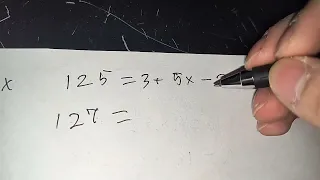 x 125 = 3 + 5x -
127 =